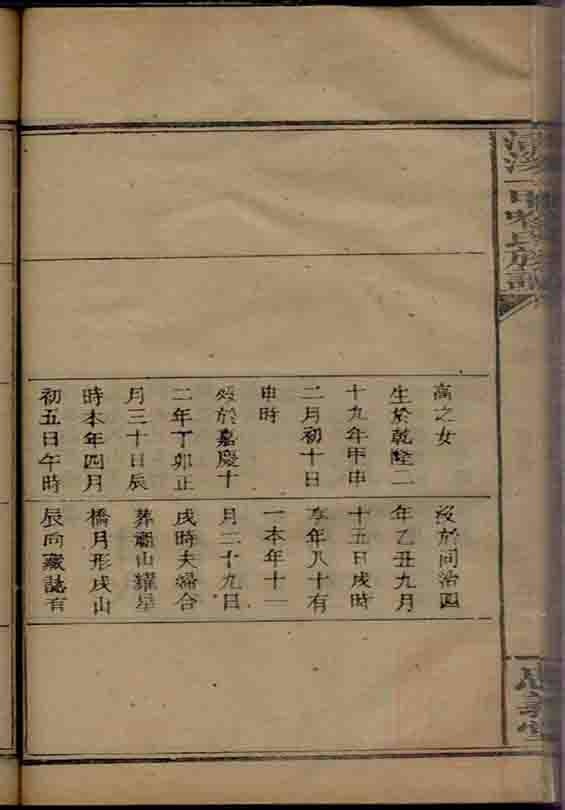 高之女
生於乾隆二
十九年甲申
二月初十日
申時
歿於嘉慶十
二年丁卯正
月三十日辰
時本年四月
初五日午時
沒於同治四
年乙丑九月
十五日戌時
享年八十有
一本年十一
月二十九日
戌時夫婦合
葬廟山耀星
橋月形戌山
辰向藏誌有
氏族譜